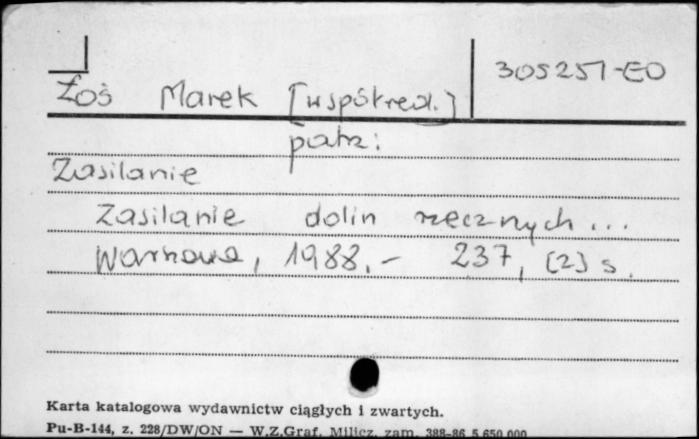 305251-EO
Łoś Marek [współred.]
patrz:
Zasilanie
Zasilanie dolin rzecznych...
Warszawa, 1988.- 237, [2] s.
Karta katalogowa wydawnictw ciągłych i zwartych.
Pu-B-144, z. 228/DW/ON — W.Z.Graf. Milicz, zam. 388-86 5.650.000